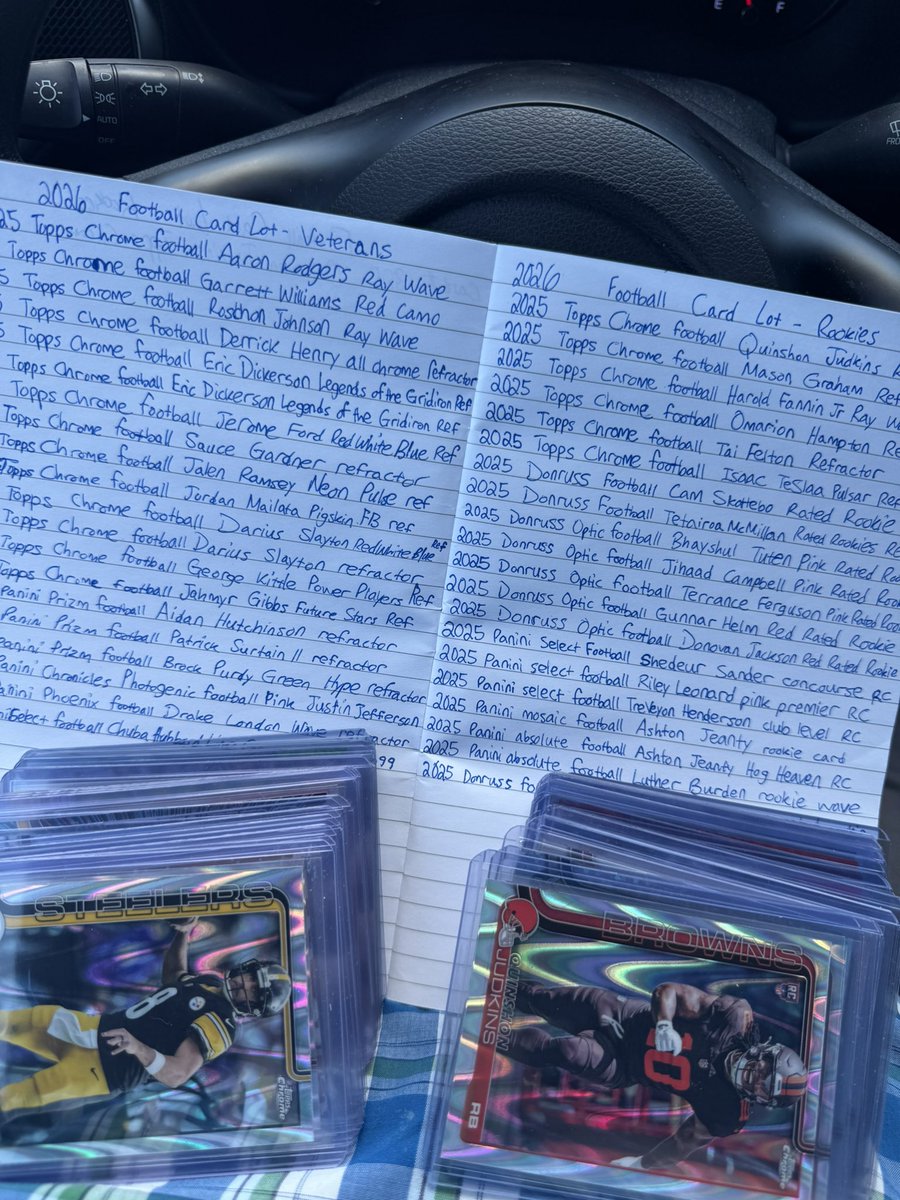 E F
AUTO
OFF
2026 Football Card Lot - Veterans
25 Topps Chrome football Aaron Rodgers Ray Wave
Topps Chrome football Garrett Williams Red Camo
5 Topps Chrome football Roschon Johnson Ray Wave
Topps Chrome football Derrick Henry all chrome refractor
5 Topps Chrome football Eric Dickerson Legends of the Gridiron Ref
Topps Chrome football Eric Dickerson Legends of the Gridiron Ref
Topps Chrome football Jerome Ford Red White Blue Ref
Topps Chrome football Sauce Gardner refractor
Topps Chrome football Jalen Ramsey Neon Pulse ref
Topps Chrome football Jordan Mailata Pigskin FB ref
Topps Chrome football Darius Slayton Red White Blue Ref
Topps Chrome football Darius Slayton refractor
Topps Chrome football George Kittle Power Players Ref
Topps Chrome football Jahmyr Gibbs Future Stars Ref
Panini Prizm football Aidan Hutchinson refractor
Panini Prizm football Patrick Surtain II refractor
Panini Prizm football Brock Purdy Green Hype refractor
Panini Chronicles Photogenic football Pink Justin Jefferson
Panini Phoenix football Drake London Wave refractor
Select football Chuba
99
2026 Football Card Lot - Rookies
2025 Topps Chrome football Quinshon Judkins
2025 Topps Chrome football Mason Graham Ref
2025 Topps Chrome football Harold Fannin Jr Ray W
2025 Topps Chrome football Omarion Hampton Re
2025 Topps Chrome football Tai Felton Refractor
2025 Topps Chrome football Isaac TeSlaa Pulsar Ref
2025 Donruss Football Cam Skattebo Rated Rookie
2025 Donruss Football Tetairoa McMillan Rated Rookies RE
2025 Donruss Optic football Bhayshul Tuten Pink Rated Roo
2025 Donruss Optic football Jihaad Campbell Pink Rated Rook
2025 Donruss Optic football Terrance Ferguson Pink Rated Rook
2025 Donruss Optic football Gunnar Helm Red Rated Rookie
2025 Donruss Optic football Donovan Jackson Red Rated Rookie
2025 Panini Select Football Shedeur Sander concourse RC
2025 Panini select football Riley Leonard pink premier RC
2025 Panini select football TreVeyon Henderson club level RC
2025 Panini mosaic football Ashton Jeanty rookie card
2025 Panini absolute football Ashton Jeanty Hog Heaven RC
2025 Panini absolute football Luther Burden rookie wave
2025 Donruss fo
STEELERS
8
Topps Chrome
BROWNS
QUINSHON
JUDKINS
RB
RC
10
Topps Chrome